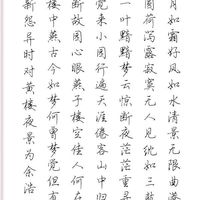 月如霜好风如水清景无限曲港
圆荷泻露寂寞无人见紞如三鼓
一叶黯黯梦云惊断夜茫茫重寻
觉来小园行遍天涯倦客山中归
断故园心眼燕子楼空佳人何在
楼中燕古今如梦何曾梦觉但有
新怨异时对黄楼夜景为余浩